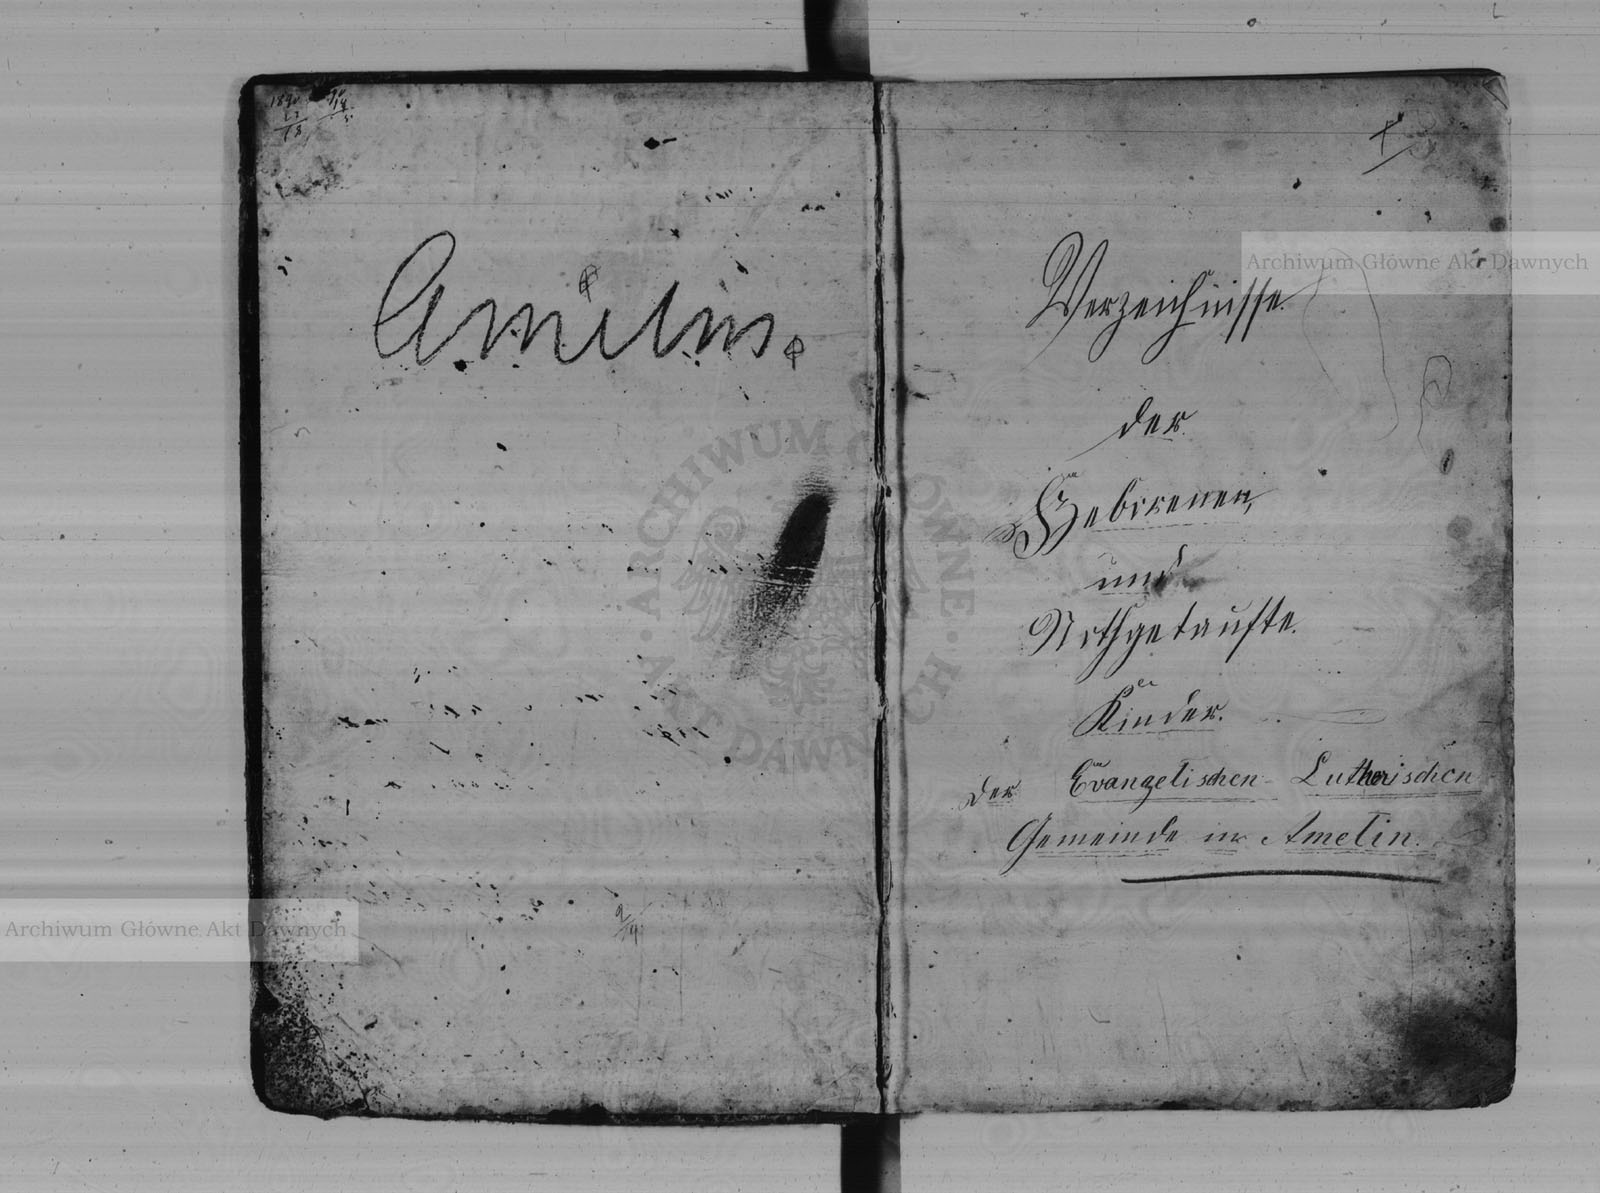 1890
18
Amelin.
Verzeichnisse
der
Geborenen,
und
Nothgetaufte.
Kinder.
der Evangelischen - Lutherischen
Gemeinde in Amelin.
Archiwum Główne Akt Dawnych
ARCHIWUM GŁÓWNE · AKT DAWNYCH ·
Archiwum Główne Akt Dawnych